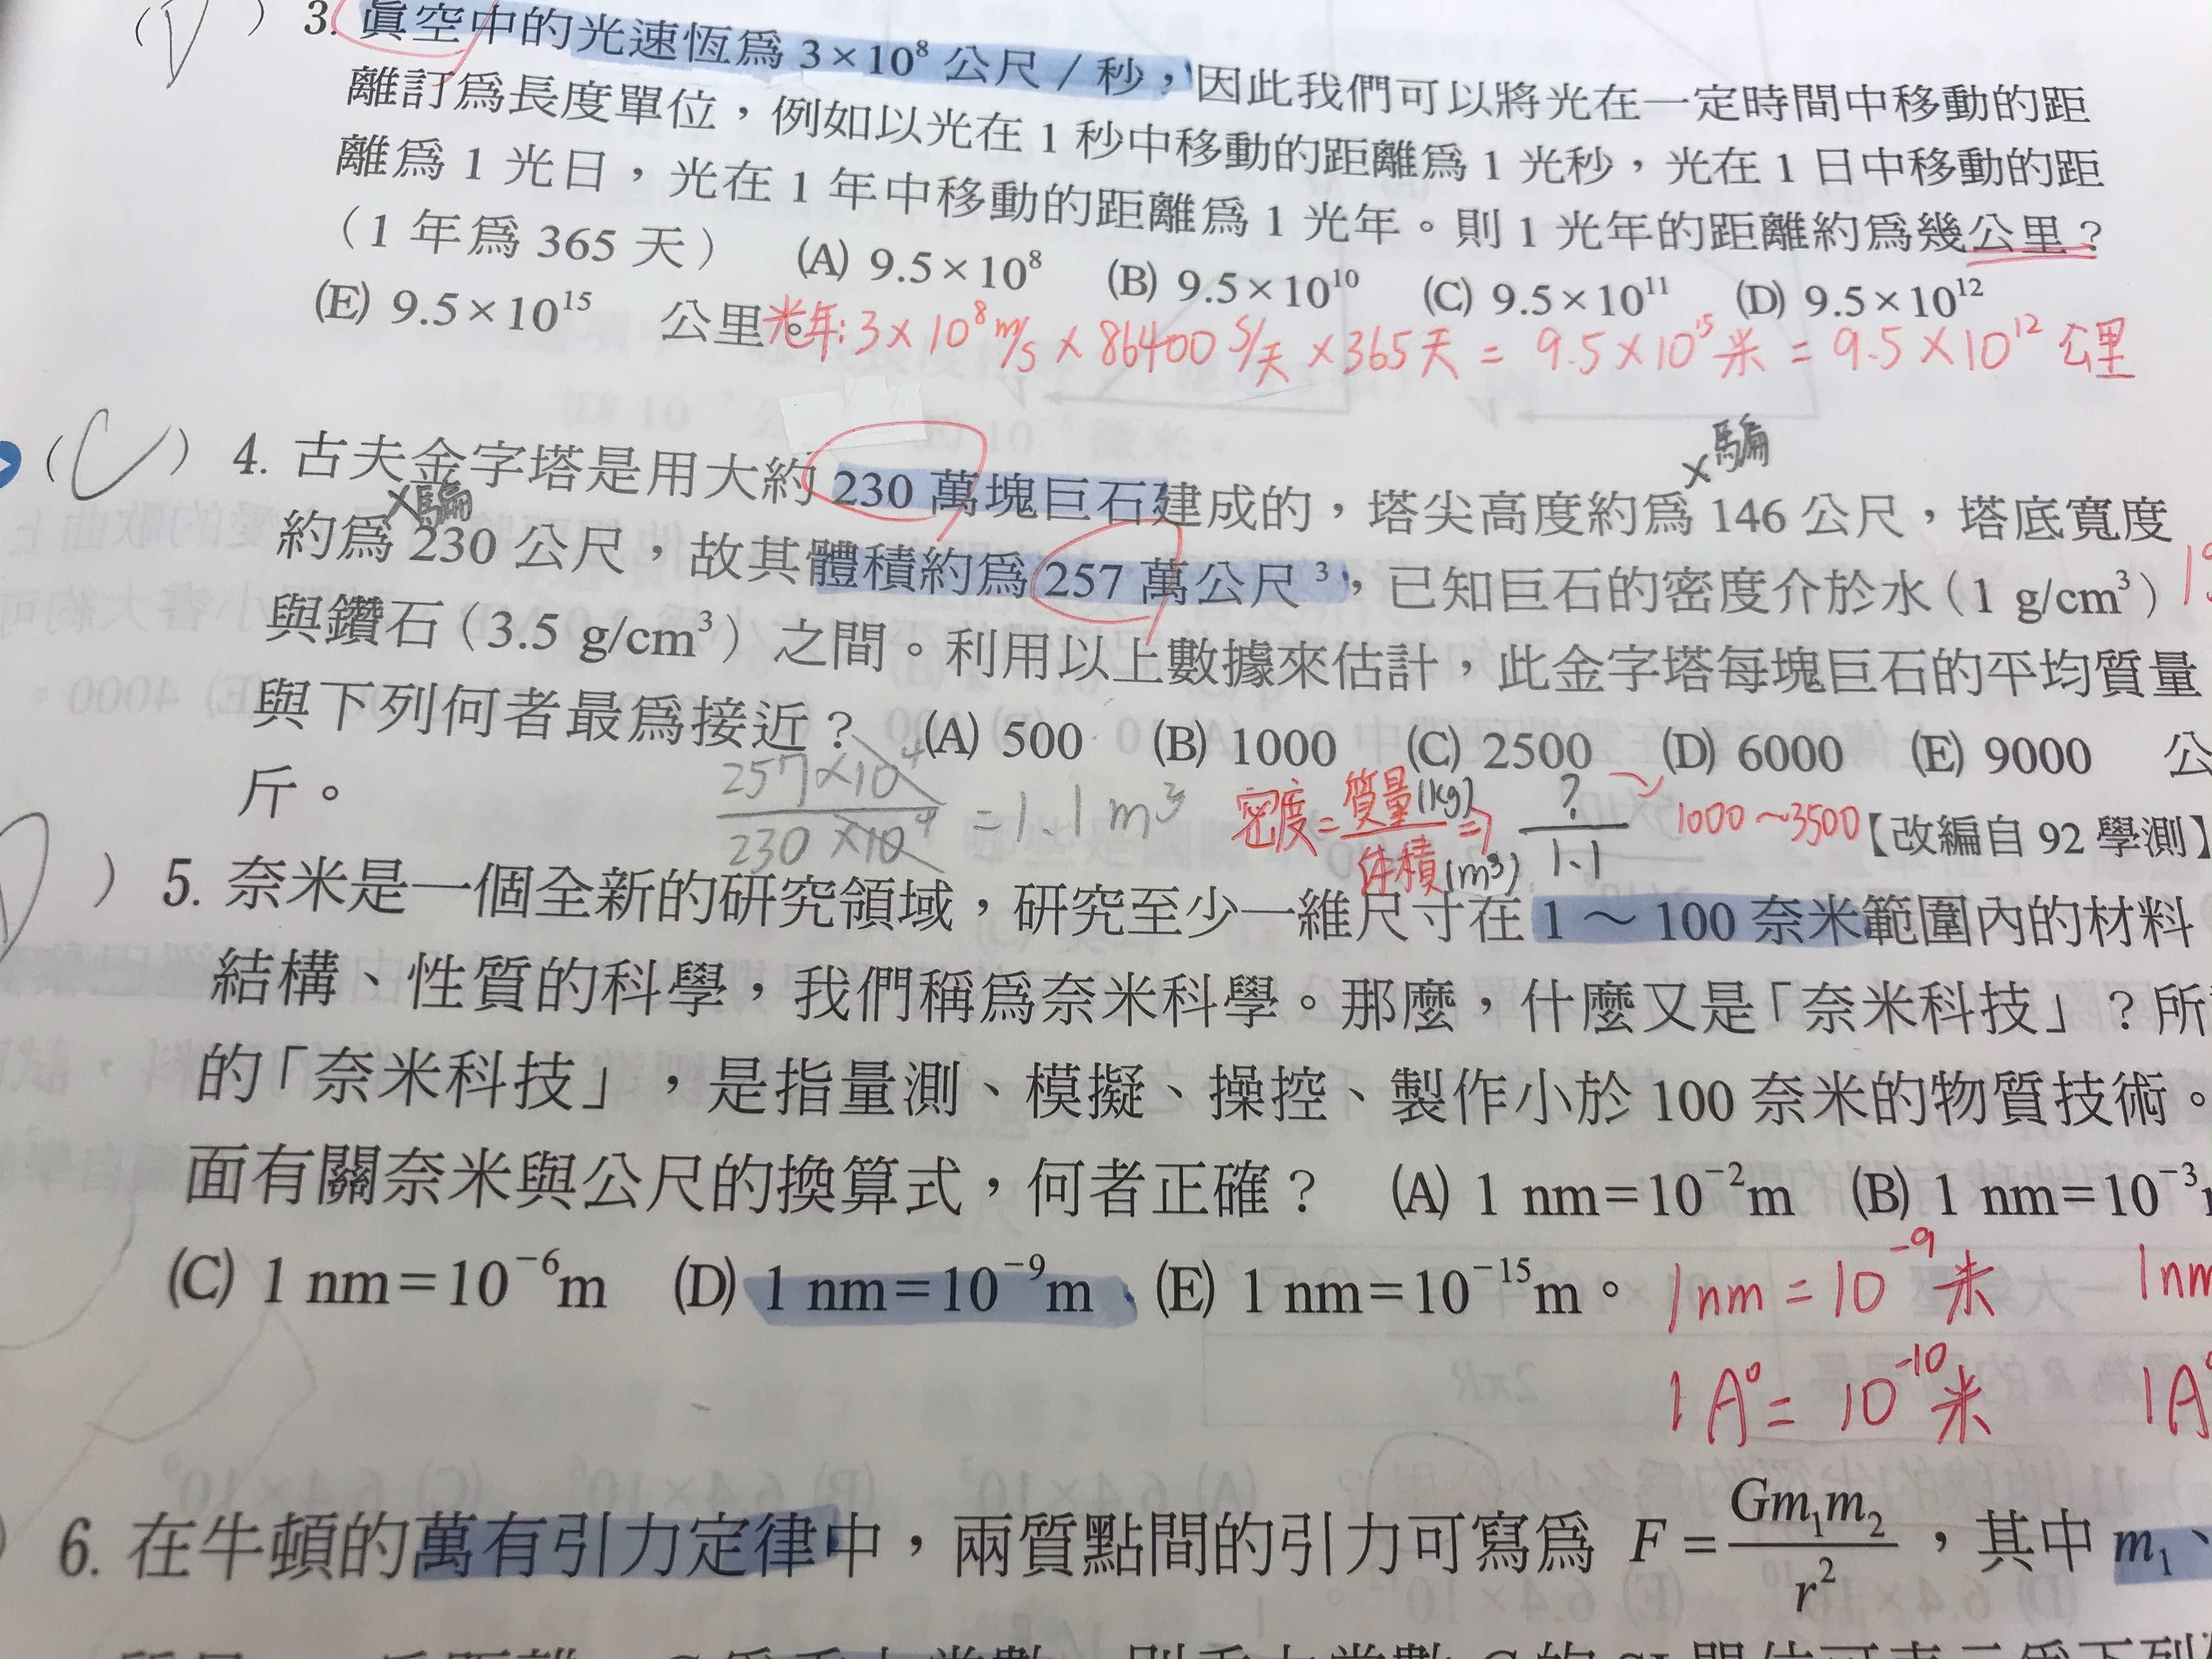 (D) 3. 眞空中的光速恆爲 3×10⁸ 公尺/秒,因此我們可以將光在一定時間中移動的距
離訂爲長度單位,例如以光在 1 秒中移動的距離爲 1 光秒,光在 1 日中移動的距
離爲 1 光日,光在 1 年中移動的距離爲 1 光年。則 1 光年的距離約爲幾公里?
(1 年爲 365 天) (A) 9.5×10⁸ (B) 9.5×10¹⁰ (C) 9.5×10¹¹ (D) 9.5×10¹²
(E) 9.5×10¹⁵ 公里。
光年: 3×10⁸ m/s × 86400 s/天 × 365天 = 9.5×10¹⁵ 米 = 9.5×10¹² 公里
×騙
(C) 4. 古夫金字塔是用大約 230 萬塊巨石建成的,塔尖高度約爲 146 公尺,塔底寬度
×騙
約爲 230 公尺,故其體積約爲 257 萬公尺³,已知巨石的密度介於水(1 g/cm³)
與鑽石(3.5 g/cm³)之間。利用以上數據來估計,此金字塔每塊巨石的平均質量
與下列何者最爲接近? (A) 500 (B) 1000 (C) 2500 (D) 6000 (E) 9000 公
斤。
257×10⁴ / 230×10⁴ = 1.1 m³
密度 = 質量(kg) / 体積(m³) ⇒ ? / 1.1
1000～3500
【改編自 92 學測】
) 5. 奈米是一個全新的研究領域,研究至少一維尺寸在 1～100 奈米範圍內的材料
結構、性質的科學,我們稱爲奈米科學。那麼,什麼又是「奈米科技」?所
的「奈米科技」,是指量測、模擬、操控、製作小於 100 奈米的物質技術。
面有關奈米與公尺的換算式,何者正確? (A) 1 nm=10⁻²m (B) 1 nm=10⁻³
(C) 1 nm=10⁻⁶m (D) 1 nm=10⁻⁹m (E) 1 nm=10⁻¹⁵m。
1nm = 10⁻⁹ 米 1nm
1A° = 10⁻¹⁰ 米 1A°
) 6. 在牛頓的萬有引力定律中,兩質點間的引力可寫爲 F=Gm₁m₂/r²,其中 m₁、